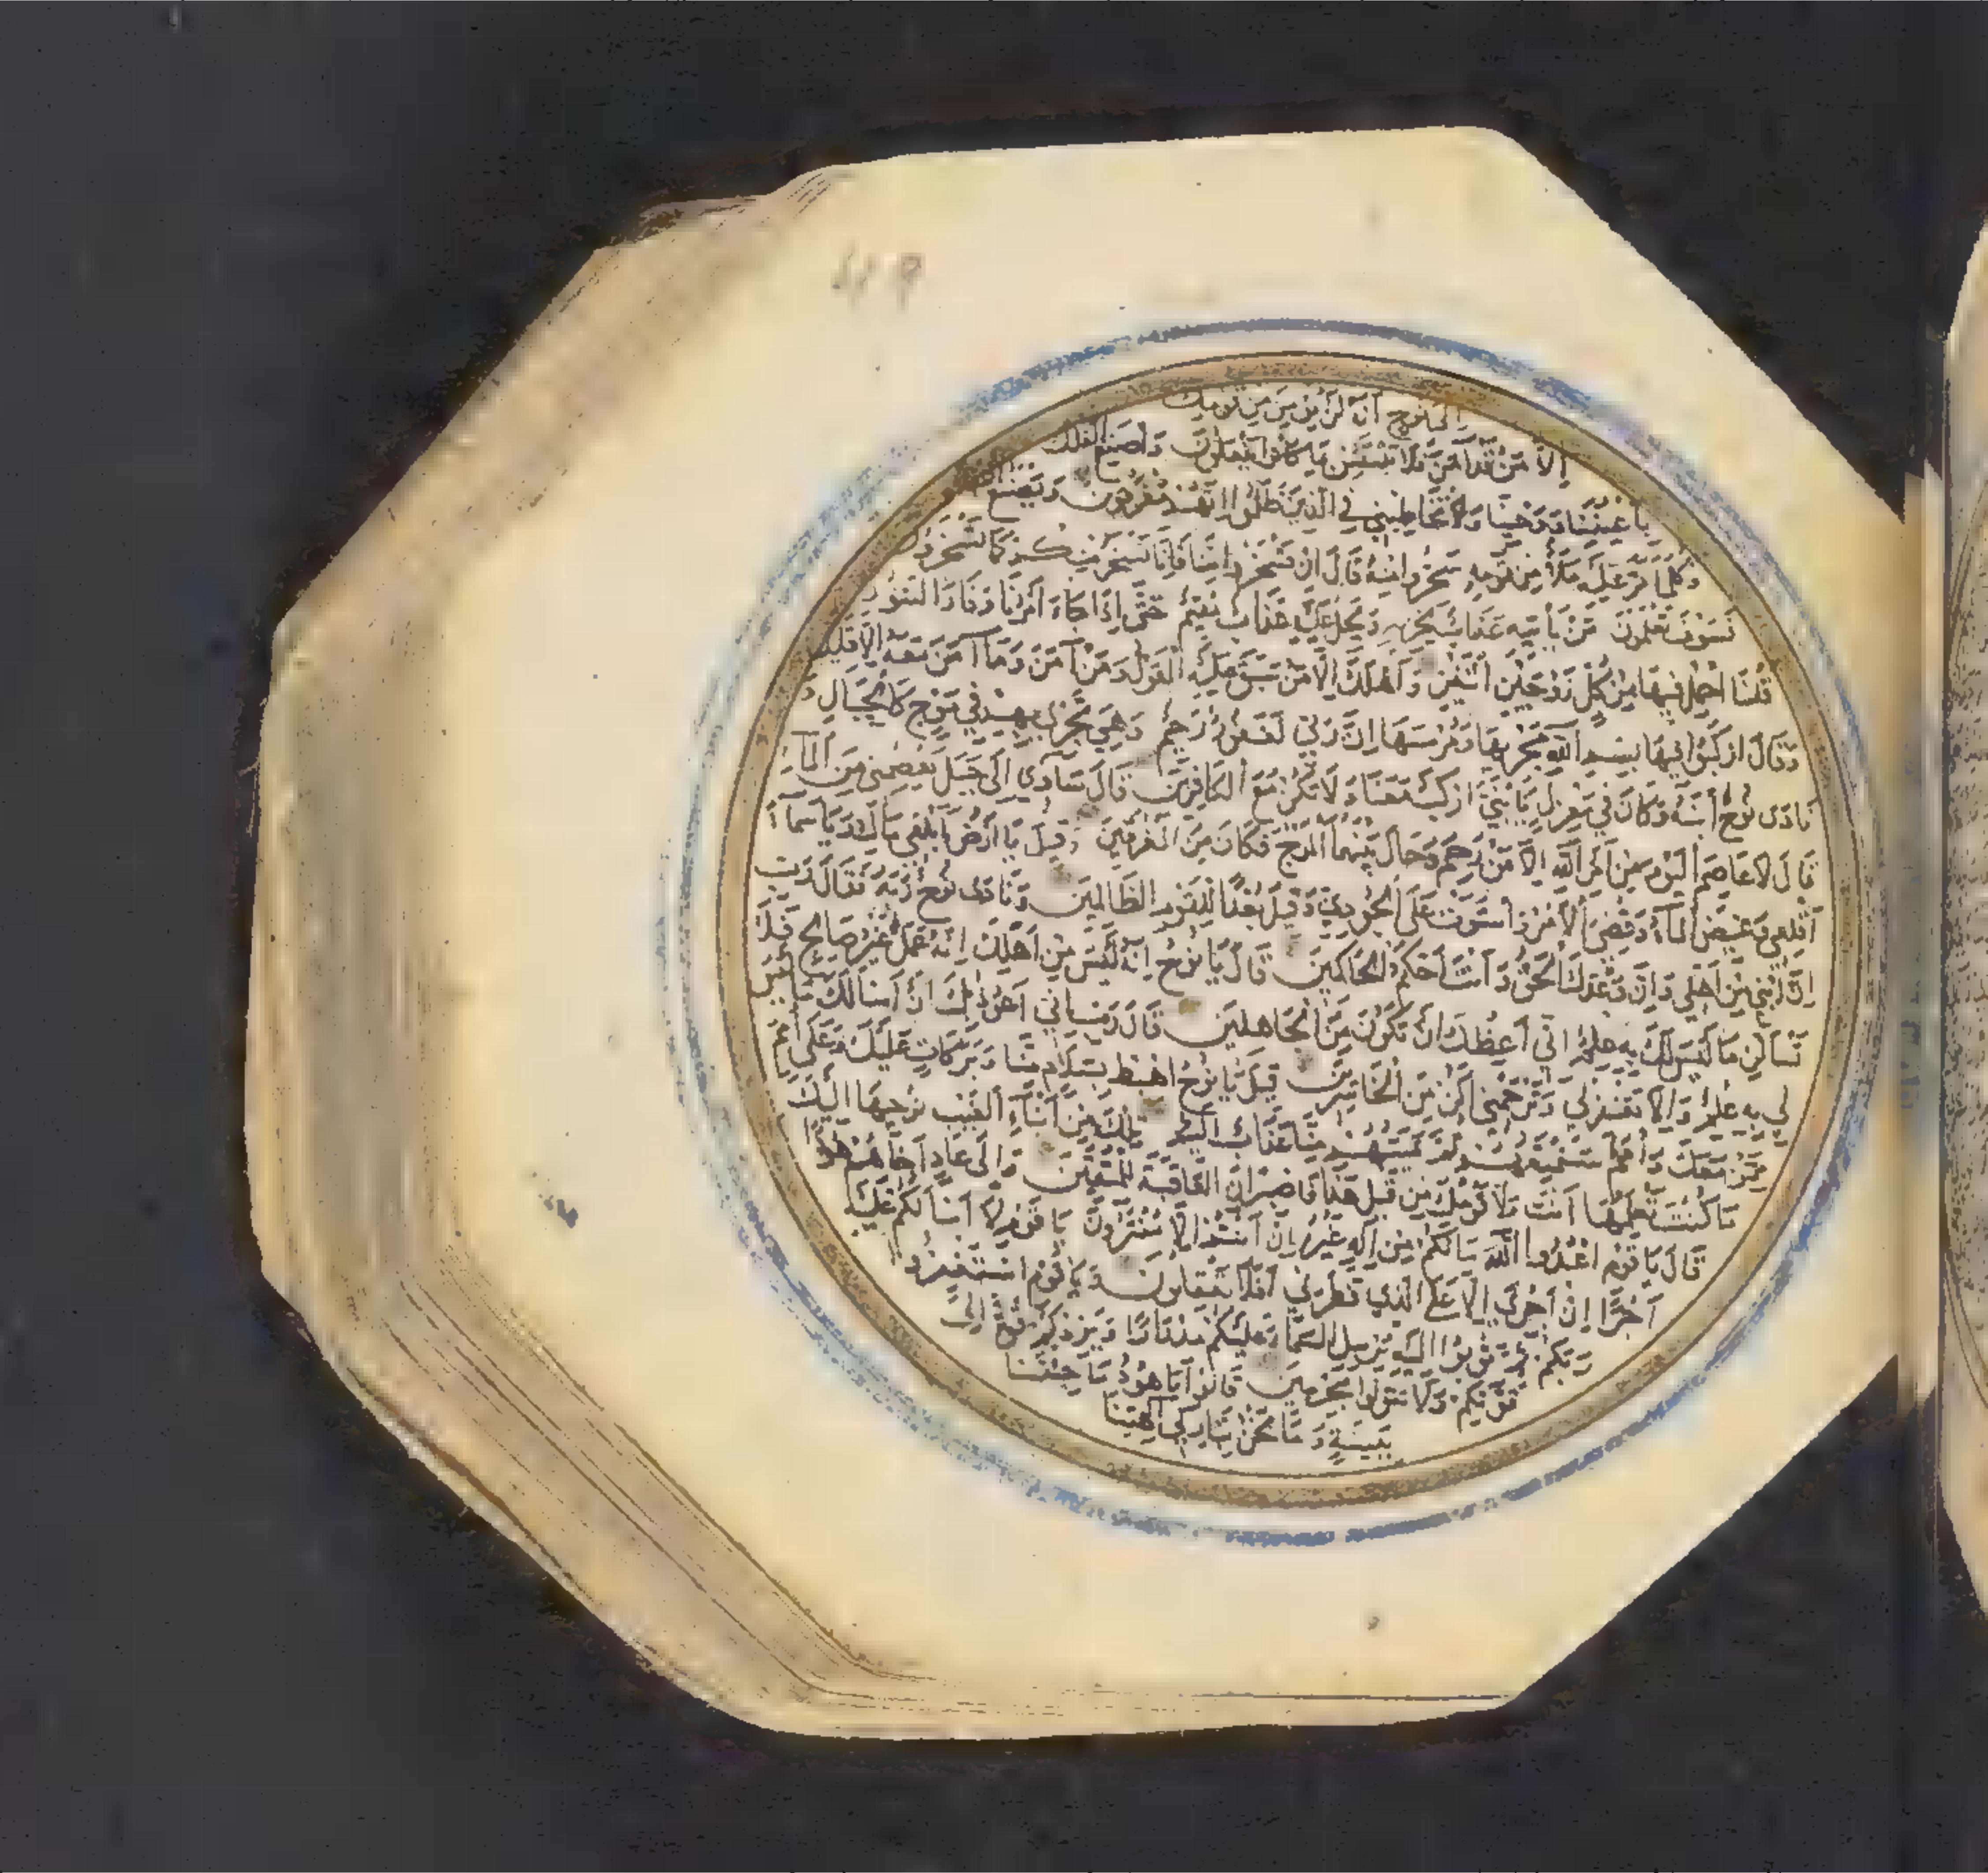 49
إلى نوح أنه لن يؤمن من قومك
إلا من قد آمن فلا تبتئس بما كانوا يفعلون واصنع الفلك
بأعيننا ووحينا ولا تخاطبني في الذين ظلموا إنهم مغرقون ويصنع الفلك
وكلما مر عليه ملأ من قومه سخروا منه قال إن تسخروا منا فإنا نسخر منكم كما تسخرون
فسوف تعلمون من يأتيه عذاب يخزيه ويحل عليه عذاب مقيم حتى إذا جاء أمرنا وفار التنور
قلنا احمل فيها من كل زوجين اثنين وأهلك إلا من سبق عليه القول ومن آمن وما آمن معه إلا قليل
وقال اركبوا فيها بسم الله مجريها ومرسيها إن ربي لغفور رحيم وهي تجري بهم في موج كالجبال و
نادى نوح ابنه وكان في معزل يا بني اركب معنا ولا تكن مع الكافرين قال سآوي إلى جبل يعصمني من الماء
قال لا عاصم اليوم من أمر الله إلا من رحم وحال بينهما الموج فكان من المغرقين وقيل يا أرض ابلعي ماءك ويا سماء
أقلعي وغيض الماء وقضي الأمر واستوت على الجودي وقيل بعدا للقوم الظالمين ونادى نوح ربه فقال رب
إن ابني من أهلي وإن وعدك الحق وأنت أحكم الحاكمين قال يا نوح إنه ليس من أهلك إنه عمل غير صالح فلا
تسألن ما ليس لك به علم إني أعظك أن تكون من الجاهلين قال رب إني أعوذ بك أن أسألك ما ليس
لي به علم وإلا تغفر لي وترحمني أكن من الخاسرين قيل يا نوح اهبط بسلام منا وبركات عليك وعلى أمم
ممن معك وأمم سنمتعهم ثم يمسهم منا عذاب أليم تلك من أنباء الغيب نوحيها إليك
ما كنت تعلمها أنت ولا قومك من قبل هذا فاصبر إن العاقبة للمتقين وإلى عاد أخاهم هودا
قال يا قوم اعبدوا الله ما لكم من إله غيره إن أنتم إلا مفترون يا قوم لا أسألكم عليه
أجرا إن أجري إلا على الذي فطرني أفلا تعقلون ويا قوم استغفروا
ربكم ثم توبوا إليه يرسل السماء عليكم مدرارا ويزدكم قوة إلى
قوتكم ولا تتولوا مجرمين قالوا يا هود ما جئتنا
ببينة وما نحن بتاركي آلهتنا